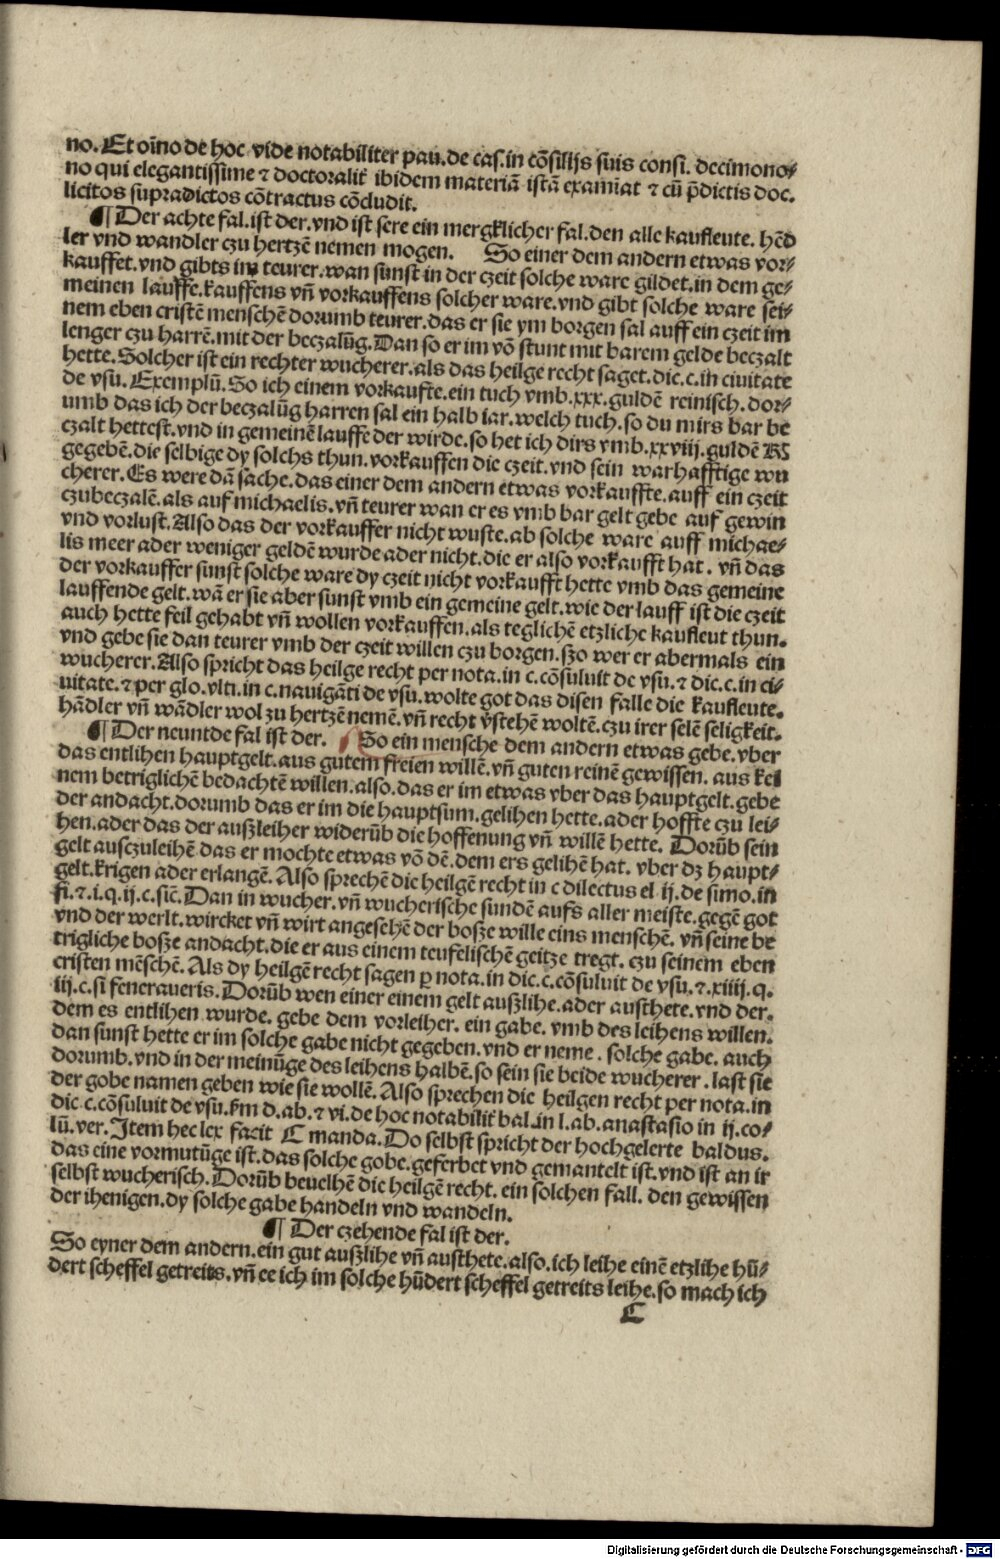 no. Et oīno de hoc vide notabiliter pau. de cas. in cōsilijs suis consi. decimono⸗
no qui elegantissime ⁊ doctoralit̄ ibidem materiā istā examīat ⁊ cū p̄dictis doc.
licitos supradictos cōtractus cōcludit.
¶ Der achte fal. ist der. vnd ist sere ein mergklicher fal. den alle kaufleute. hēd
ler vnd wandler czu hertzē nemen mogen. So einer dem andern etwas vor⸗
kauffet. vnd gibts im teurer. wan sunst in der czeit solche ware gildet. in dem ge⸗
meinen lauffe. kauffens vn̄ vorkauffens solcher ware. vnd gibt solche ware sei⸗
nem eben cristē menschē dorumb teurer. das er sie ym borgen sal auff ein czeit im
lenger czu harrē. mit der beczalūg. Dan so er im vō stunt mit barem gelde beczalt
hette. Solcher ist ein rechter wucherer. als das heilge recht saget. dic. c. in ciuitate
de vsu. Exemplū. So ich einem vorkaufte. ein tuch vmb. xxx. guldē reinisch. dor⸗
umb das ich der beczalūg harren sal ein halb iar. welch tuch. so du mirs bar be
czalt hettest. vnd in gemeinē lauffe der wirde. so het ich dirs vmb. xxviij. guldē
gegebē. die selbige dy solchs thun. vorkauffen die czeit. vnd sein warhafftige wu
cherer. Es were dā sache. das einer dem andern etwas vorkauffte. auff ein czeit
czubeczalē. als auf michaelis. vn̄ teurer wan er es vmb bar gelt gebe auf gewin
vnd vorlust. Also das der vorkauffer nicht wuste. ab solche ware auff michae⸗
lis meer ader weniger geldē wurde ader nicht. die er also vorkaufft hat. vn̄ das
der vorkauffer sunst solche ware dy czeit nicht vorkaufft hette vmb das gemeine
lauffende gelt. wā er sie aber sunst vmb ein gemeine gelt. wie der lauff ist die czeit
auch hette feil gehabt vn̄ wollen vorkauffen. als teglichē etzliche kaufleut thun.
vnd gebe sie dan teurer vmb der czeit willen czu borgen. szo wer er abermals ein
wucherer. Also spricht das heilge recht per nota. in c. cōsuluit de vsu. ⁊ dic. c. in ci⸗
uitate. ⁊ per glo. vlti. in c. nauigāti de vsu. wolte got das disen falle die kaufleute.
hādler vn̄ wādler wol zu hertzē nemē. vn̄ recht v̄stehē woltē. czu irer selē seligkeit.
¶ Der neuntde fal ist der. So ein mensche dem andern etwas gebe. vber
das entlihen hauptgelt. aus gutem freien willē. vn̄ guten reinē gewissen. aus kei
nem betriglichē bedachtē willen. also. das er im etwas vber das hauptgelt. gebe
der andacht. dorumb das er im die hauptsum. gelihen hette. ader hoffte czu lei⸗
hen. ader das der außleiher widerūb die hoffenung vn̄ willē hette. Dorūb sein
gelt ausczuleihē das er mochte etwas vō dē. dem ers gelihē hat. vber dz haupt⸗
gelt. krigen ader erlangē. Also sprechē die heilgē recht in c dilectus el ij. de simo. in
fi. ⁊. i. q. ij. c. sic̄. Dan in wucher. vn̄ wucherische sundē aufs aller meiste. gegē got
vnd der werlt. wircket vn̄ wirt angesehē der boße wille eins menschē. vn̄ seine be
trigliche boße andacht. die er aus einem teufelischē geitze tregt. czu seinem eben
cristen mēschē. Als dy heilgē recht sagen ꝑ nota. in dic. c. cōsuluit de vsu. ⁊. xiiij. q.
iij. c. si feneraueris. Dorūb wen einer einem gelt außlihe. ader austhete. vnd der.
dem es entlihen wurde. gebe dem vorleiher. ein gabe. vmb des leihens willen.
dan sunst hette er im solche gabe nicht gegeben. vnd er neme. solche gabe. auch
dorumb. vnd in der meinūge des leihens halbē. so sein sie beide wucherer. last sie
der gobe namen geben wie sie wollē. Also sprechen die heilgen recht per nota. in
dic. c. cōsuluit de vsu. fm d. ab. ⁊ vi. de hoc notabilit̄ bal. in l. ab. anastasio in ij. co⸗
lū. ver. Item hec lex facit C manda. Do selbst spricht der hochgelerte baldus.
das eine vormutūge ist. das solche gobe. geferbet vnd gemantelt ist. vnd ist an ir
selbst wucherisch. Dorūb beuelhē die heilgē recht. ein solchen fall. den gewissen
der ihenigen. dy solche gabe handeln vnd wandeln.
¶ Der czehende fal ist der.
So eyner dem andern. ein gut außlihe vn̄ austhete. also. ich leihe einē etzlihe hū⸗
dert scheffel getreits. vn̄ ee ich im solche hūdert scheffel getreits leihe. so mach ich
C
Digitalisierung gefördert durch die Deutsche Forschungsgemeinschaft - DFG